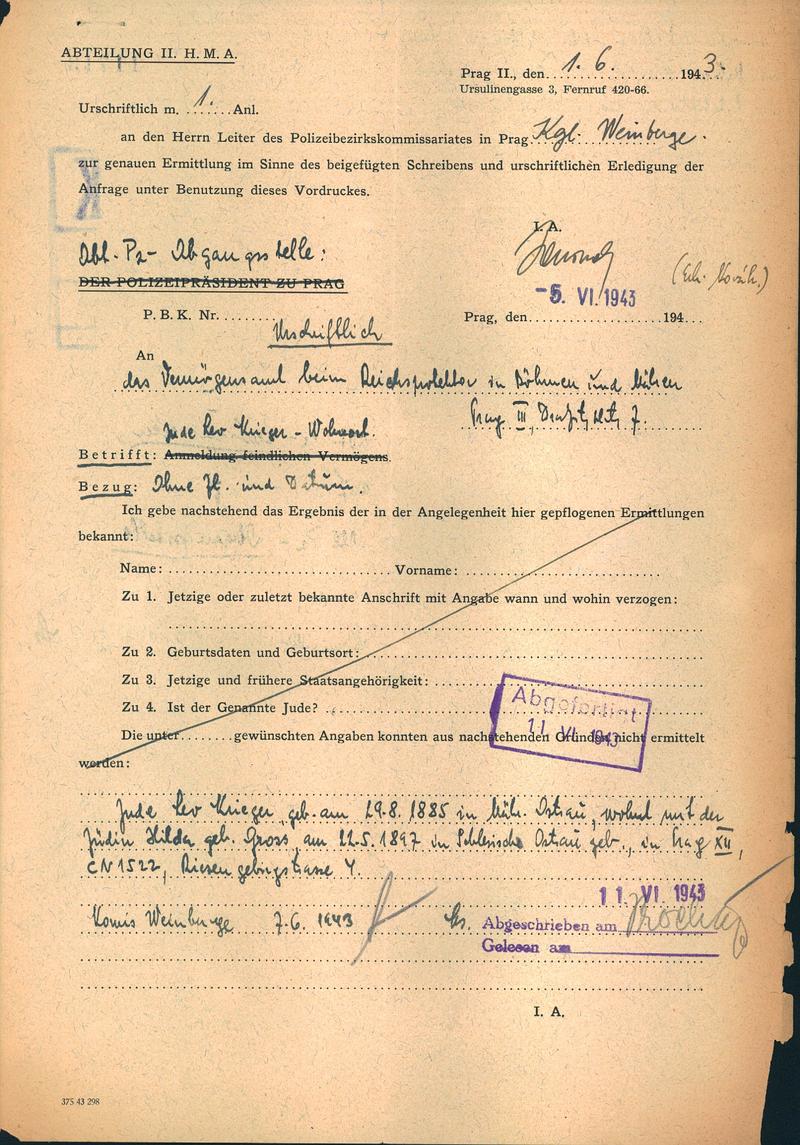 ABTEILUNG II. H. M. A.
Prag II., den 1. 6. 1943.
Ursulinengasse 3, Fernruf 420-66.
Urschriftlich m. 1. Anl.
an den Herrn Leiter des Polizeibezirkskommissariates in Prag Kgl. Weinberge.
zur genauen Ermittlung im Sinne des beigefügten Schreibens und urschriftlichen Erledigung der
Anfrage unter Benutzung dieses Vordruckes.
I. A.
Abt. P2- Abgangsstelle:
DER POLIZEIPRÄSIDENT ZU PRAG
-5. VI. 1943
P. B. K. Nr.........
Prag, den.......................194...
Urschriftlich
An
das Vermögensamt beim Reichsprotektor in Böhmen und Mähren
Prag III,
Jude Lev Krieger - Wohnort.
Betrifft: Anmeldung feindlichen Vermögens.
Bezug: Ohne Zl. und Datum.
Ich gebe nachstehend das Ergebnis der in der Angelegenheit hier gepflogenen Ermittlungen
bekannt:
Name:.......................................Vorname:..................................
Zu 1. Jetzige oder zuletzt bekannte Anschrift mit Angabe wann und wohin verzogen:
Zu 2. Geburtsdaten und Geburtsort:
Zu 3. Jetzige und frühere Staatsangehörigkeit:
Zu 4. Ist der Genannte Jude?
Abgefertigt
11 VI. 1943
Die unter........gewünschten Angaben konnten aus nachstehenden Gründen nicht ermittelt
werden:
Jude Lev Krieger, geb. am 29.8.1885 in Mähr. Ostrau, wohnt mit der
Jüdin Hilda geb. Gross, am 22.5.1897 in Schlesisch Ostrau geb., in Prag XII,
CN 1522, Riesengebirgstrasse 4.
11 VI 1943
Komis Weinberge 7.6. 1943
Abgeschrieben am
Gelesen am
I. A.
375 43 298